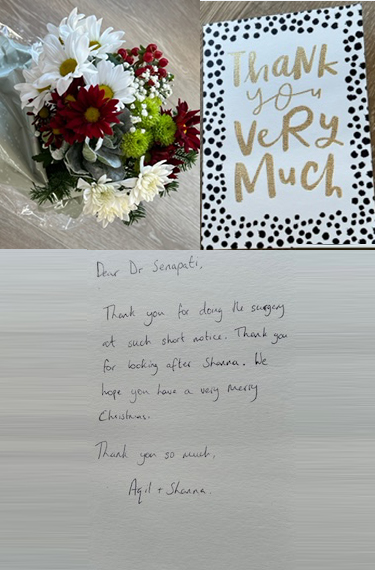 THANK
you
VeRy
Much
Dear Dr Senapati,
Thank you for doing the surgery
at such short notice. Thank you
for looking after Shanna. We
hope you have a very merry
Christmas.
Thank you so much,
Aqil + Shanna.